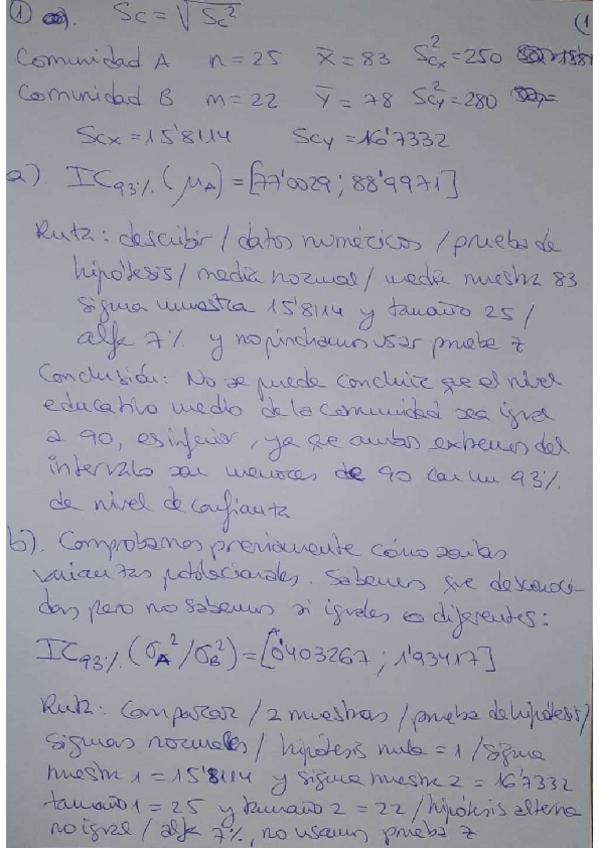 ① a). Sc = √Sc² (1
Comunidad A n = 25 X̄ = 83 S²cx = 250
Comunidad B m = 22 Ȳ = 78 S²cy = 280
Scx = 15'8114 Scy = 16'7332
a). IC93%(μA) = [77'0029 ; 88'9971]
Ruta: describir / datos numéricos / prueba de
hipótesis / media normal / media muestra 83
sigma muestra 15'8114 y tamaño 25 /
alfa 7% y no pinchamos usar prueba z
Conclusión: No se puede concluir que el nivel
educativo medio de la comunidad sea igual
a 90, es inferior, ya que ambos extremos del
intervalo son menores de 90 con un 93%
de nivel de confianza
b). Comprobamos previamente cómo son las
varianzas poblacionales. Sabemos que desconoci-
das pero no sabemos si iguales o diferentes:
IC93%(σA²/σB²) = [0'403267 ; 1'93417]
Ruta: Comparar / 2 muestras / prueba de hipótesis /
sigmas normales / hipótesis nula = 1 / sigma
muestra 1 = 15'8114 y sigma muestra 2 = 16'7332
tamaño 1 = 25 y tamaño 2 = 22 / hipótesis alterna
no igual / alfa 7%, no usamos prueba z